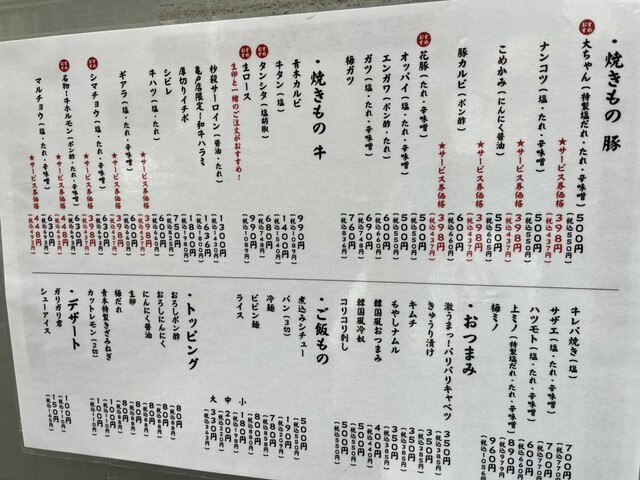 ・焼きもの 豚
おすすめ
大ちゃん(特製塩だれ・たれ・辛味噌)
500円
(税込550円)
★サービス券価格 398円
(税込437円)
ナンコツ(塩・たれ・辛味噌)
500円
(税込550円)
★サービス券価格 398円
(税込437円)
こめかみ(にんにく醤油)
550円
(税込605円)
★サービス券価格 398円
(税込437円)
豚カルビ(ポン酢)
600円
(税込660円)
おすすめ
花豚(塩・たれ・辛味噌)
500円
(税込550円)
★サービス券価格 398円
(税込437円)
オッパイ(塩・たれ・辛味噌)
500円
(税込550円)
エンガワ(ポン酢・たれ)
600円
(税込660円)
ガツ(塩・たれ・辛味噌)
690円
梅ガツ
760円
(税込836円)
・焼きもの 牛
青木カルビ
990円
牛タン(塩)
1400円
(税込1540円)
おすすめ
タンシタ(塩胡椒)
748円
おすすめ
生ロース
900円
(税込990円)
生卵と一緒のご注文がおすすめ!
炒殺サーロイン(醤油・たれ)
1300円
(税込1430円)
亀戸店限定!和牛ハラミ
1636円
厚切りイチボ
1800円
シビレ
750円
牛ハツ(塩・たれ・辛味噌)
600円
(税込660円)
★サービス券価格 398円
(税込437円)
ギアラ(塩・たれ・辛味噌)
600円
(税込660円)
★サービス券価格 398円
(税込437円)
おすすめ
シマチョウ(塩・たれ・辛味噌)
630円
(税込693円)
★サービス券価格 398円
(税込437円)
おすすめ
名物!牛ホルモン(ポン酢・たれ・辛味噌)
630円
(税込693円)
★サービス券価格 448円
マルチョウ(塩・たれ・辛味噌)
630円
(税込693円)
★サービス券価格 448円
キレバ焼き(塩)
700円
(税込770円)
サザエ(塩・たれ・辛味噌)
700円
(税込770円)
ハツモト(塩・たれ・辛味噌)
600円
(税込660円)
上ミノ(特製塩だれ・たれ・辛味噌)
890円
(税込979円)
梅ミノ
960円
(税込1056円)
・おつまみ
激うまっ!バリバリキャベツ
350円
(税込385円)
きゅうり漬け
350円
(税込385円)
キムチ
350円
(税込385円)
もやしナムル
350円
(税込385円)
韓国風おつまみ
400円
(税込440円)
韓国風冷奴
500円
(税込550円)
コリコリ刺し
500円
(税込550円)
・ご飯もの
煮込みシチュー
500円
(税込550円)
パン(3切)
190円
冷麺
780円
ビビン麺
880円
ライス
小 180円
(税込198円)
中 200円
(税込220円)
大 230円
(税込253円)
・トッピング
おろしポン酢
80円
(税込88円)
おろしにんにく
80円
(税込88円)
にんにく醤油
80円
(税込88円)
生卵
80円
(税込88円)
梅だれ
80円
(税込88円)
青木特製きざみねぎ
80円
(税込88円)
カットレモン(2切)
100円
(税込110円)
・デザート
ガリガリ君
100円
(税込110円)
シューアイス
150円
(税込165円)